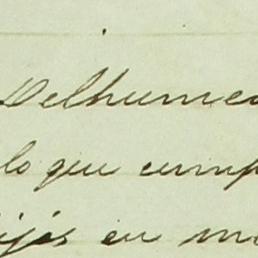 Delhumea
lo que cump
en m